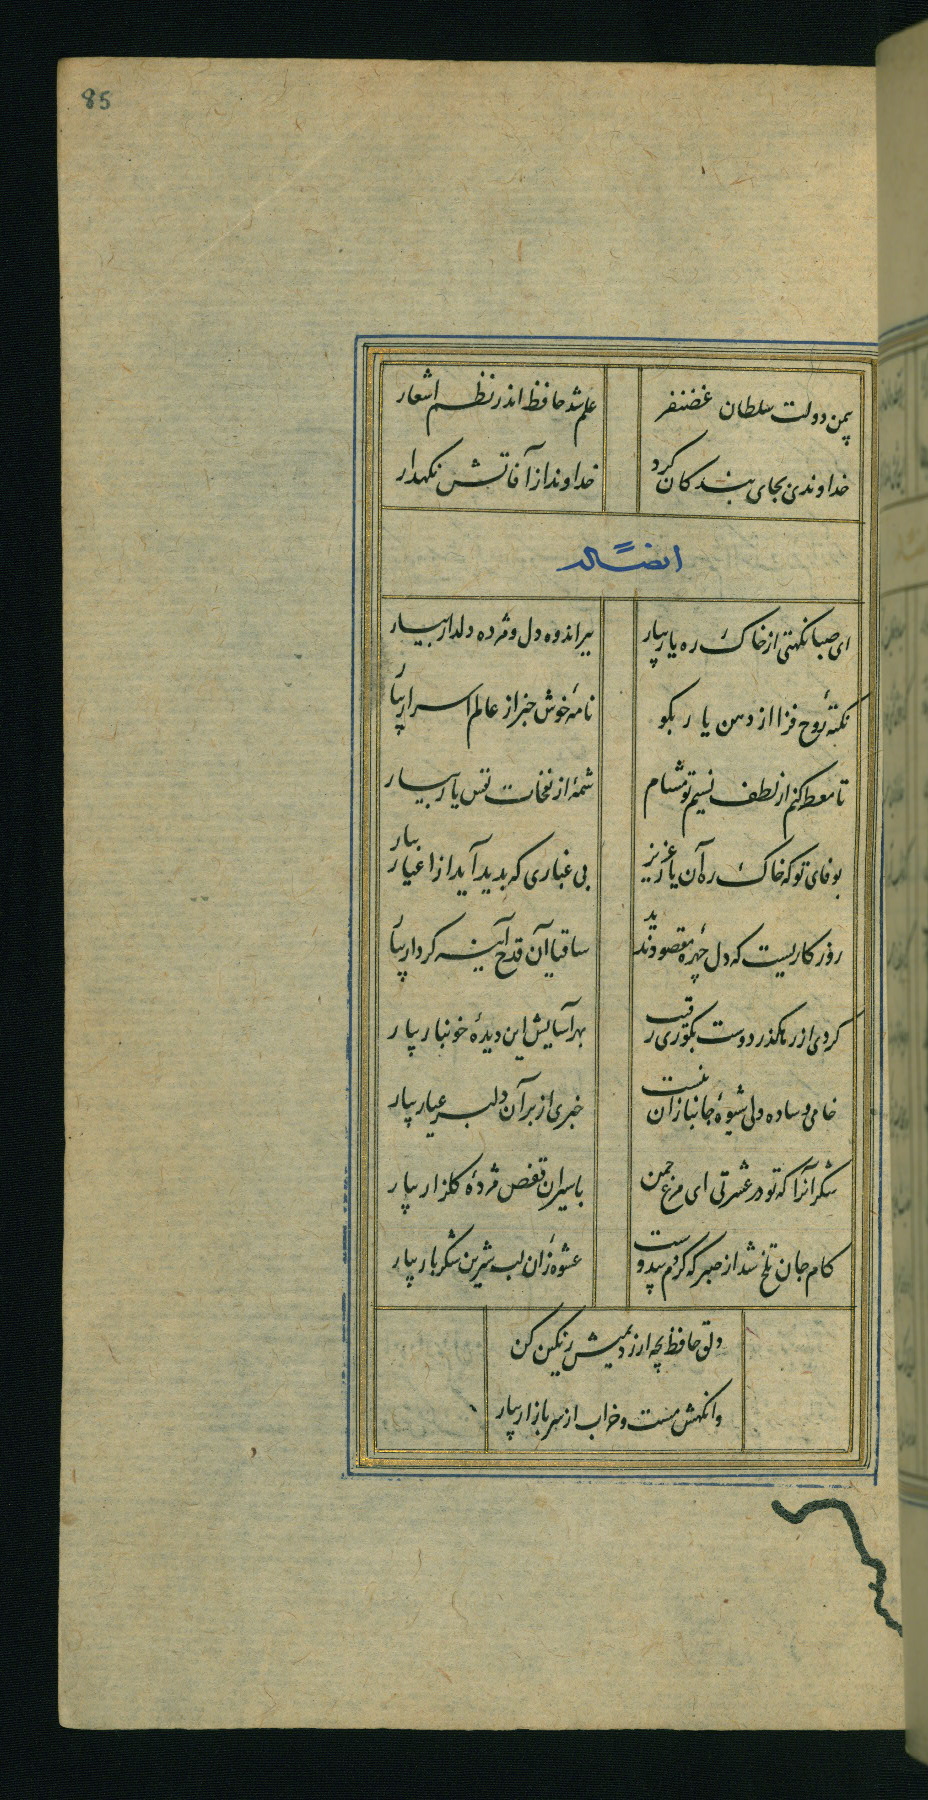 85
بیمن دولت سلطان غضنفر علم شد حافظ اندر نظم اشعار
خداوندی بجای بندکان کرد خداوندا ز آفاتش نکهدار
ایضاً له
ای صبا نکهتی از خاک ره یار بیار ببر اندوه دل و مژده دلدار بیار
نکتهٔ روح فزا از دهن یار بکو نامهٔ خوش خبر از عالم اسرار بیار
تا معطر کنم از لطف نسیم تو مشام شمهٔ از نفحات نفس یار بیار
بوفای تو که خاک ره آن یار عزیز بی غباری که بدید آید از اغیار بیار
روزکاریست که دل چهرهٔ مقصود ندید ساقیا آن قدح آینه کردار بیار
کردی از رهکذر دوست بکوری رقیب بهر آسایش این دیدهٔ خونبار بیار
خامی و ساده دلی شیوهٔ جانبازان نیست خبری از بر آن دلبر عیار بیار
شکر آنرا که تو در عشرتی ای مرغ چمن باسیران قفص مژدهٔ کلزار بیار
کام جان تلخ شد از صبر که کردم بیدوست عشوهٔ زان لب شیرین شکربار بیار
دلق حافظ بچه ارزد بمیش رنکین کن
وانکهش مست و خراب از سر بازار بیار